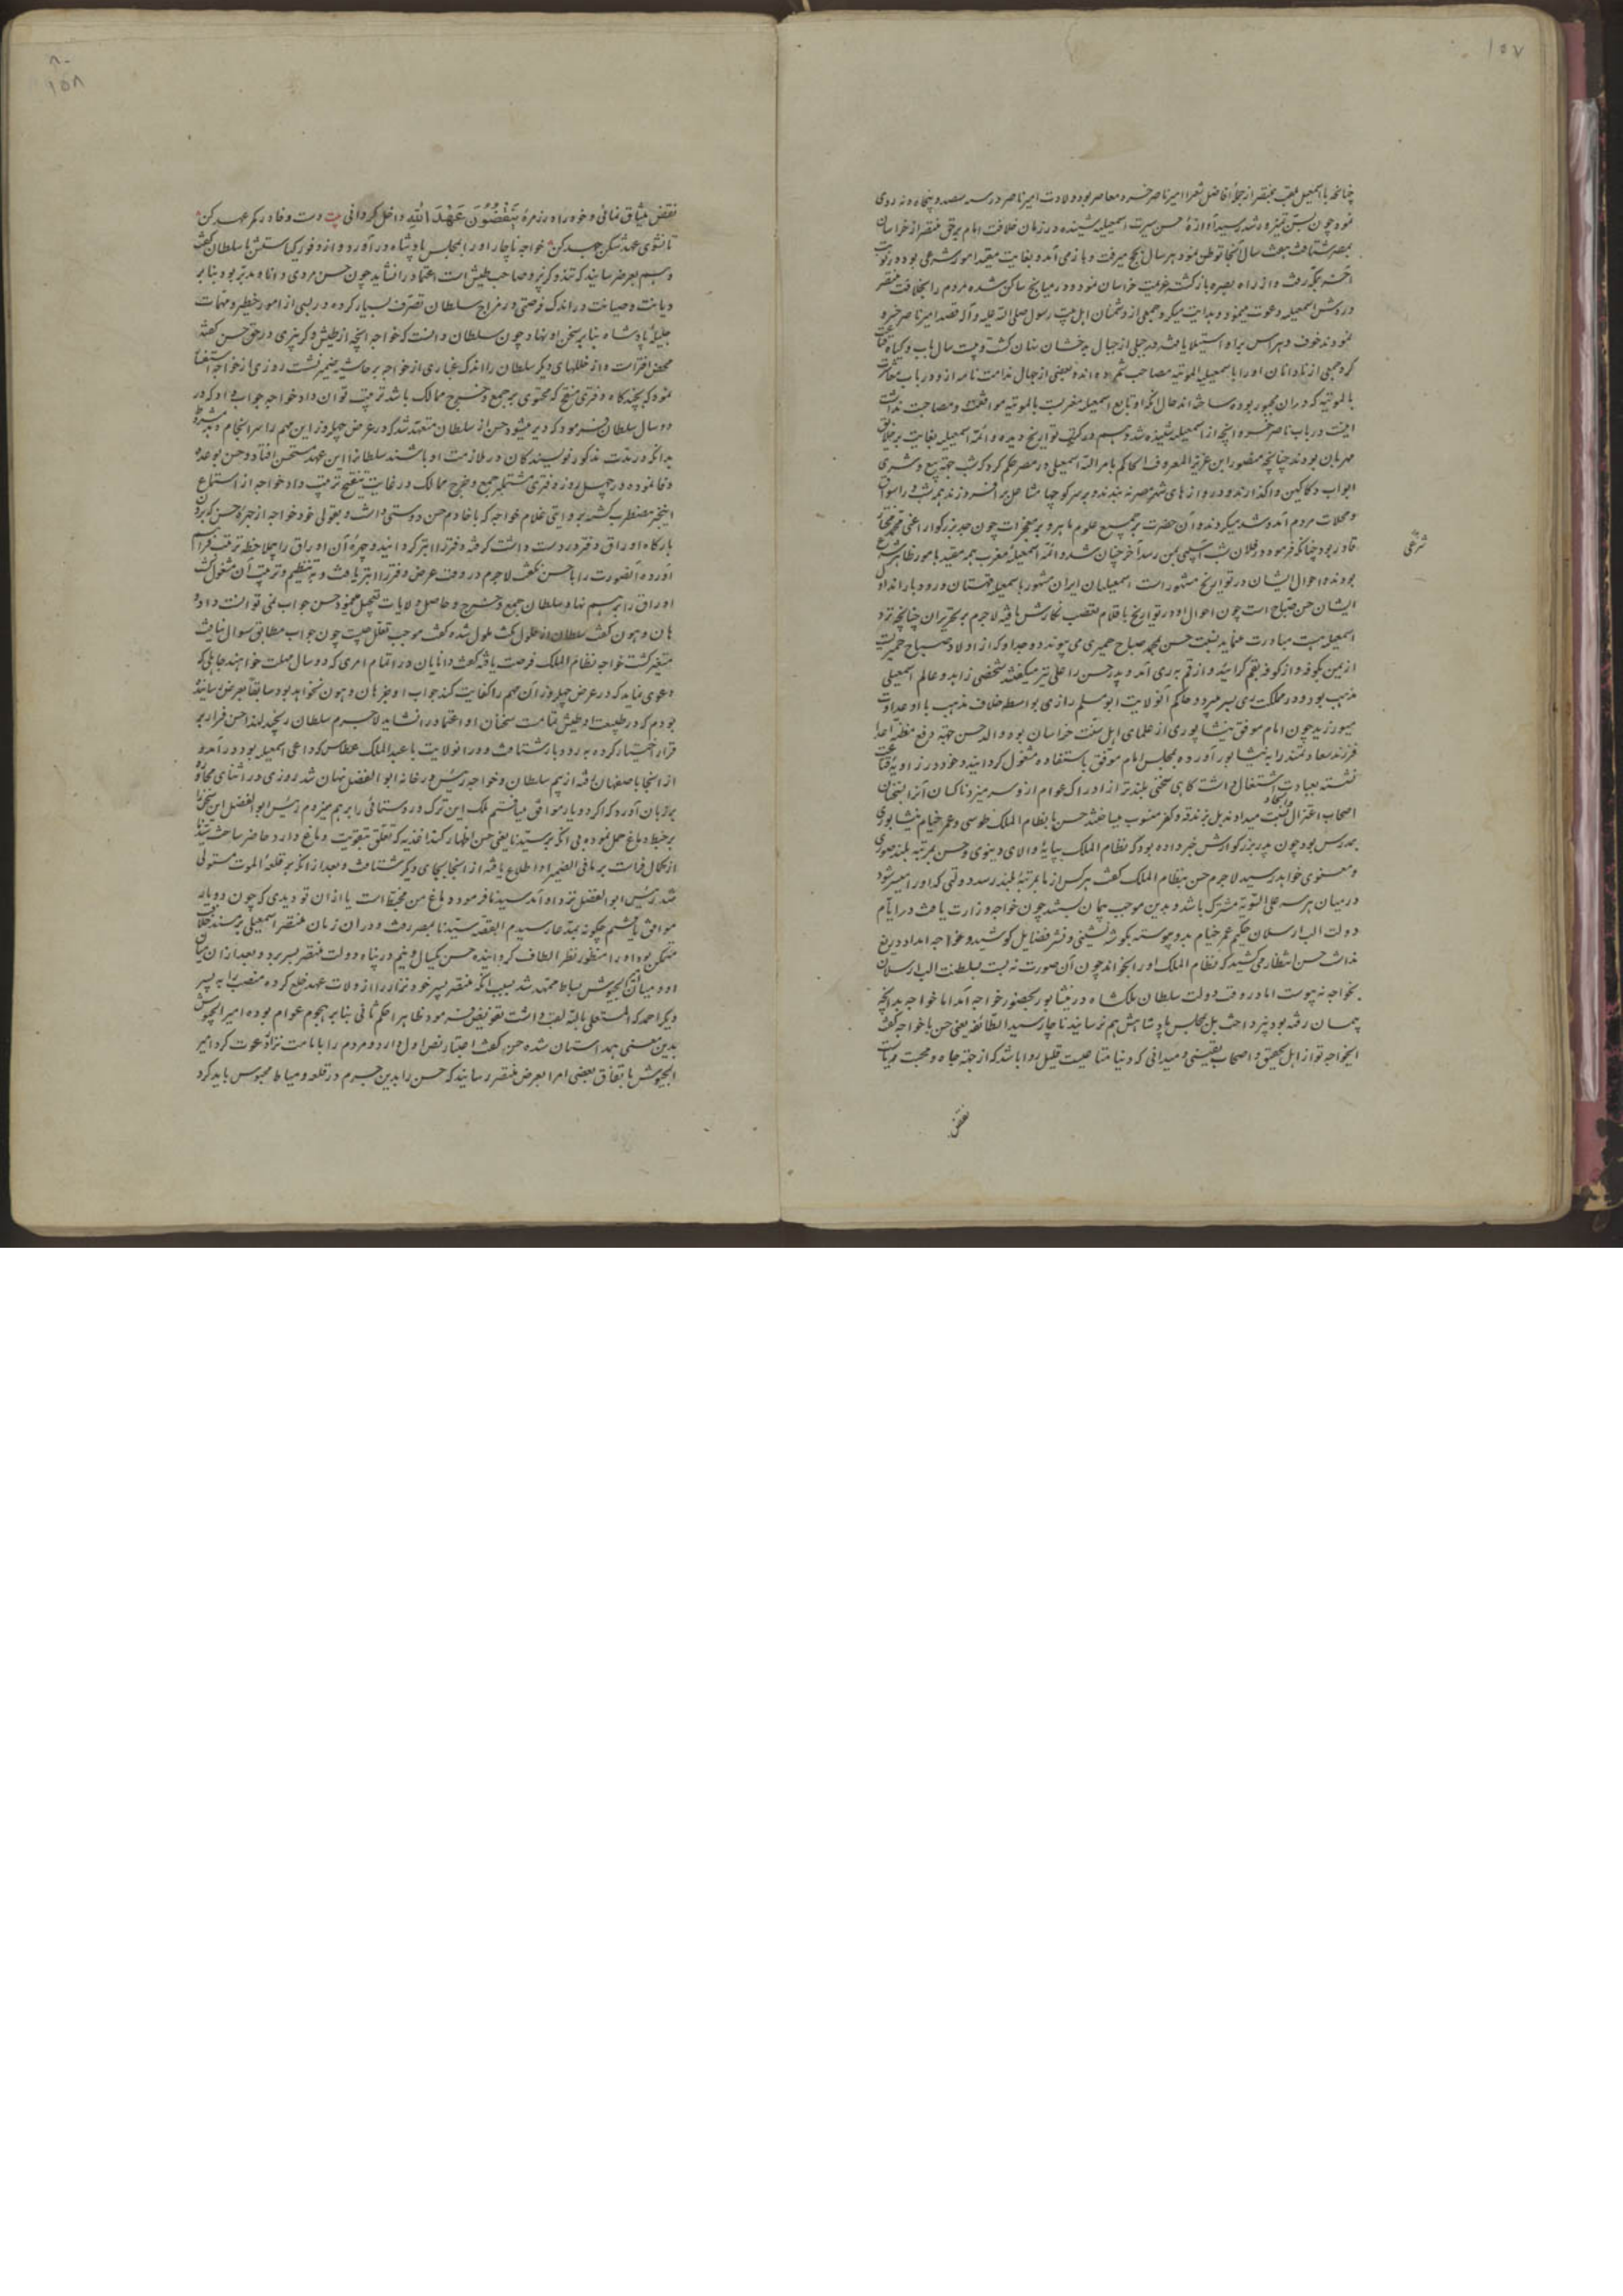 ۱۵۷
چنانچه با اسمعیل ملقب بمنتصر از جملهٔ افاضل شعرا امیر ناصر خسرو معاصر بود و ولادت امیر ناصر در سنه سیصد و پنجاه و نه روی
نمود چون بسن تمیز و رشد رسید آوازهٔ حسن سیرت اسمعیلیه شنیده در زمان خلافت امام برحق منتصر از خراسان
بمصر شتافت هفت سال آنجا توطن نمود هر سال بحج میرفت و باز می آمد و بغایت مقید امور شرعی بود و در نوبت
آخر بمکه رفت و از راه بصره بازگشت عزیمت خراسان نمود و در میانج ساکن شده مردم را بخلافت منتصر
در روش اسمعیله دعوت مینمود و هدایت میکرد جمعی از دشمنان اهل بیت رسول صلی الله علیه و آله قصد امیر ناصر خسرو
نمودند خوف و هراس بر او استیلا یافته در جبلی از جبال بدخشان پنهان گشت و بیست سال بآب و گیاه قناعت
کرد جمعی از نادانان او را با اسمعیلیه الموتیه مصاحب شمرده اند و بعضی از جهال ندامت نامه از و در باب معاشرت
با الموتیه که در ان مجبور بوده ساخته اند حال آنکه او تابع اسمعیله مغربست با الموتیه موافقت و مصاحبت نداشت
اینست در باب ناصر خسرو آنچه از اسمعیلیه شنیده شد و هم در کتب تواریخ دیده و ائمهٔ اسمعیلیه بغایت بر خلایق
مهربان بودند چنانچه منصور ابن عزیز المعروف الحاکم بامر الله اسمعیلی در مصر حکم کرد که شب جهة بیع و شری
ابواب دکاکین واگذارند و دروازهای شهر مصر نه بندند و بر سر کوچها مشاعل بر افروزند همه شب در اسواق
و محلات مردم آمد و شد میکردند و آن حضرت بر جمیع علوم ماهر و بر معجزات چون جد بزرگوار اعنی محمد مختار
قادر بود چنانکه فرموده در فلان شب آسیبی بمن رسد آخر چنان شد و ائمهٔ اسمعیلیهٔ مغرب همه مقید بامور ظاهر شرع
شرعی
بودند و احوال ایشان در تواریخ مشهور است اسمعیلیان ایران مشهور باسمعیلیه قهستان و رودبارند اول
ایشان حسن صباح است چون احوال او در تواریخ باقلام تعصب نگارش یافته لاجرم بر تحریر ان چنانچه نزد
اسمعیلیه است مبادرت مینماید نسبت حسن بمحمد صباح حمیری می پیوندد و جد او که از اولاد صباح حمیریست
از یمن بکوفه و از کوفه بقم گرائید و از قم بری آمد و پدر حسن را علی نیز میگفتند شخصی زاهد و عالم اسمعیلی
مذهب بود و در مملکت ری بسر میبرد و حاکم آن ولایت ابو مسلم رازی بواسطه خلاف مذهب با او عداوت
میورزید چون امام موفق نیشاپوری از علمای اهل سنت خراسان بود والد حسن جهة دفع مظنهٔ اعدا
فرزند سعادتمند را به نیشاپور آورده بمجلس امام موفق باستفاده مشغول گردانید و خود در زاویهٔ قناعت
نشسته بعبادت اشتغال داشت گاهی سخنی بلندتر از ادراک عوام از و سر میزد ناکسان آنرا بسخنان
اصحاب اعتزال نسبت میدادند بل بزندقه و کفر منسوب میساختند حسن با نظام الملک طوسی و عمر خیام نیشابوری
همدرس بود چون پدر بزرگوارش خبر داده بود که نظام الملک بپایهٔ والای دنیوی و حسن بمرتبه بلند صوری
و معنوی خواهد رسید لاجرم حسن بنظام الملک گفت هرکس از ما بمرتبهٔ بلند رسد دولتی که او را میسر شود
در میان هر سه علی السویه مشترک باشد و بدین موجب پیمان بستند چون خواجه وزارت یافت در ایام
دولت الب ارسلان حکیم عمر خیام بدو پیوسته بگوشه نشینی و نشر فضایل کوشید و خواجه امداد دریغ
نداشت حسن انتظار می کشید که نظام الملک او را بخواند چون آن صورت نه بست بسلطنت الب ارسلان
بخواجه نه پیوست اما در وقت دولت سلطان ملکشاه در نیشاپور بحضور خواجه آمد اما خواجه بدانچه
پیمان رفته بود نپرداخت بل بمجلس پادشاهش هم نرسانید ناچار سید الطائفه یعنی حسن با خواجه گفت
ایخواجه تو از اهل تحقیق و اصحاب یقینی و میدانی که دنیا متاعیست قلیل روا باشد که از جهة جاه و محبت
نقض
۸۰
۱۵۸
نقض میثاق نمائی و خود را در زمرهٔ یَنْقُضُونَ عَهْدَ اللّٰهِ داخل گردانی بیت دست وفا در کمر عهد کن
تا نشوی عهد شکن جهد کن خواجه ناچار او را بمجلس پادشاه درآورد و از وفور کیاستش با سلطان گفت
و هم بعرض رسانید که تند و کربز و صاحب طیش است اعتماد را نشاید چون حسن مردی دانا و مدبر بود بنابر
دیانت و صیانت در اندک فرصتی در مزاج سلطان تصرف بسیار کرده در بسی از امور خطیر و مهمات
جلیله پادشاه بنابر سخن او نهاد چون سلطان دانست که خواجه آنچه از طیش و کربزی در حق حسن گفته
محض افتراست و از خللهای دیگر سلطان را اندک غباری از خواجه بر حاشیه ضمیر نشست روزی از خواجه استفسار
نمود که بچندگاه دفتری منقح که محتوی بر جمع و خرج ممالک باشد ترتیب توان داد خواجه جواب داد که در
دو سال سلطان فرمود که دیر میشود حسن از سلطان متعهد شد که در عرض چهل روز این مهم را سرانجام دهد بشرط
بدانکه در مدت مذکور نویسندکان در ملازمت او باشند سلطانرا این عهد مستحسن افتاد و حسن بوعده
وفا نموده در چهل روز دفتری مشتمل بر جمع و خرج ممالک در غایت تنقیح ترتیب داد خواجه از استماع
اینخبر مضطرب گشته بروایتی غلام خواجه که با خادم حسن دوستی داشت و بقولی خود خواجه از حجرهٔ حسن که برون
بارگاه اوراق دفتر در دست داشت گرفته دفتر را ابتر گردانید و چهرهٔ آن اوراق را بملاحظه ترتیب فراهم
آورده انصورت را با حسن نگفت لاجرم در وقت عرض دفتر را ابتر یافت و به تنظیم و ترتیب آن مشغول گشت
اوراق را بر هم نهاد سلطان جمع و خرج و حاصل ولایات تعجیل مینمود حسن جواب نمی توانست داد و
هان و هون گفت سلطان از طول مکث ملول شده گفت موجب تعلل چیست چون جواب مطابق سوال نیافت
متغیر گشت خواجه نظام الملک فرصت یافته گفت دانایان در اتمام امری که دو سال مهلت خواهند جاهلی که
دعوی نماید که در عرض چهل روز آن مهم را کفایت کند جواب او جز هان و هون نخواهد بود سابقا بعرض رسانیده
بودم که در طبیعت او طیش تمامست سخنان او اعتماد را نشاید لاجرم سلطان رنجید لهذا حسن فرار بر
قرار اختیار کرده به رودبار شتافت و در آنولایت با عبد الملک عطاش که داعی اسمعیله بود درآمد و
از انجا باصفهان رفته از بیم سلطان و خواجه رئیس در خانه ابو الفضل نهان شد روزی در اثنای محاوره
بر زبان آورد که اگر دو یار موافق میافتم ملک این ترک و روستائی را بر هم میزدم رئیس ابو الفضل این سخن را
بر خبط دماغ حمل نموده بی آنکه بر سیدنا یعنی حسن اظهار کند اغذیه که تعلق بتقویت دماغ دارد حاضر ساخت سیدنا
از کمال فراست بر ما فی الضمیر او اطلاع یافته از انجا بجای دیگر شتافت و بعد از آنکه بر قلعهٔ الموت مستولی
شد رئیس ابو الفضل نزد او آمد سیدنا فرمود دماغ من مخبط است یا از ان تو دیدی که چون دو یار
موافق یافتم چگونه بمدعا رسیدم القصه سیدنا بمصر رفت و در ان زمان منتصر اسمعیلی بر مسند خلافت
متمکن بود او را منظور نظر الطاف گردانیده حسن یکسال و نیم در پناه دولت منتصر بسر برد و بعد از ان میان
او و میان امیر الجیوش بساط ممهد شد بسبب آنکه منتصر پسر خود نزار را از ولات عهد خلع کرده منصب را به پسر
دیگر احمد که المستعلی بالله لقب داشت تفویض فرمود ظاهرا حکم ثانی بنابر هجوم عوام بوده امیر الجیوش
بدین معنی همداستان شده حسن گفت اعتبار نص اول دارد و مردم را بامامت نزار دعوت کرد امیر
الجیوش باتفاق بعضی امرا بعرض منتصر رسانید که حسن را بدین جرم در قلعه دمیاط محبوس باید کرد